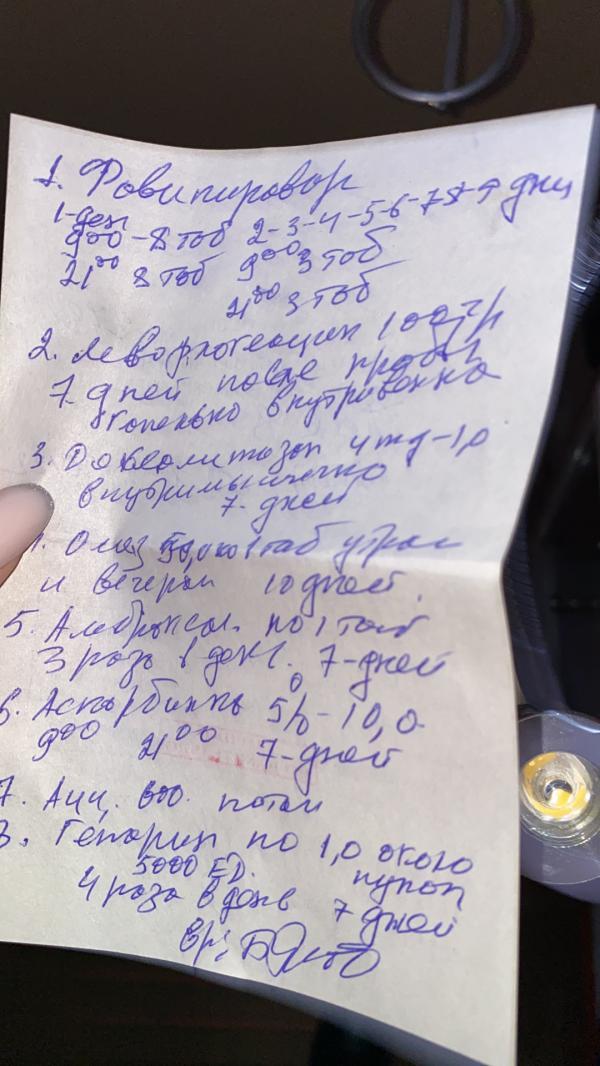 1. Фовипировор
1-ден
9⁰⁰ - 8 таб 2-3-4-5-6-7-8-9 дни
21⁰⁰ 8 таб 9⁰⁰ 3 таб
21⁰⁰ 3 таб
2. 100
7 дней после пробы
капельно внутривенно
3. 4 мг - 1,0
внутримышечно
7 - дней
Омез 1 таб утром
и вечером 10 дней.
5. Амброксол. по 1 таб
3 раза в день. 7-дней
6. Аскорбинка 5% - 10,0
9⁰⁰ 21⁰⁰ 7-дней
7. Ацц. 600. потом
8. Гепарин по 1,0 около
5000 ЕД. пупка
4 раза в день 7 дней
вр: